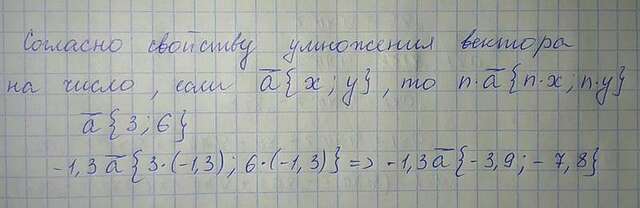 Согласно свойству умножения вектора
на число, если a̅{x; y}, то n·a̅{n·x; n·y}
a̅{3; 6}
-1,3a̅{3·(-1,3); 6·(-1,3)} => -1,3a̅{-3,9; -7,8}